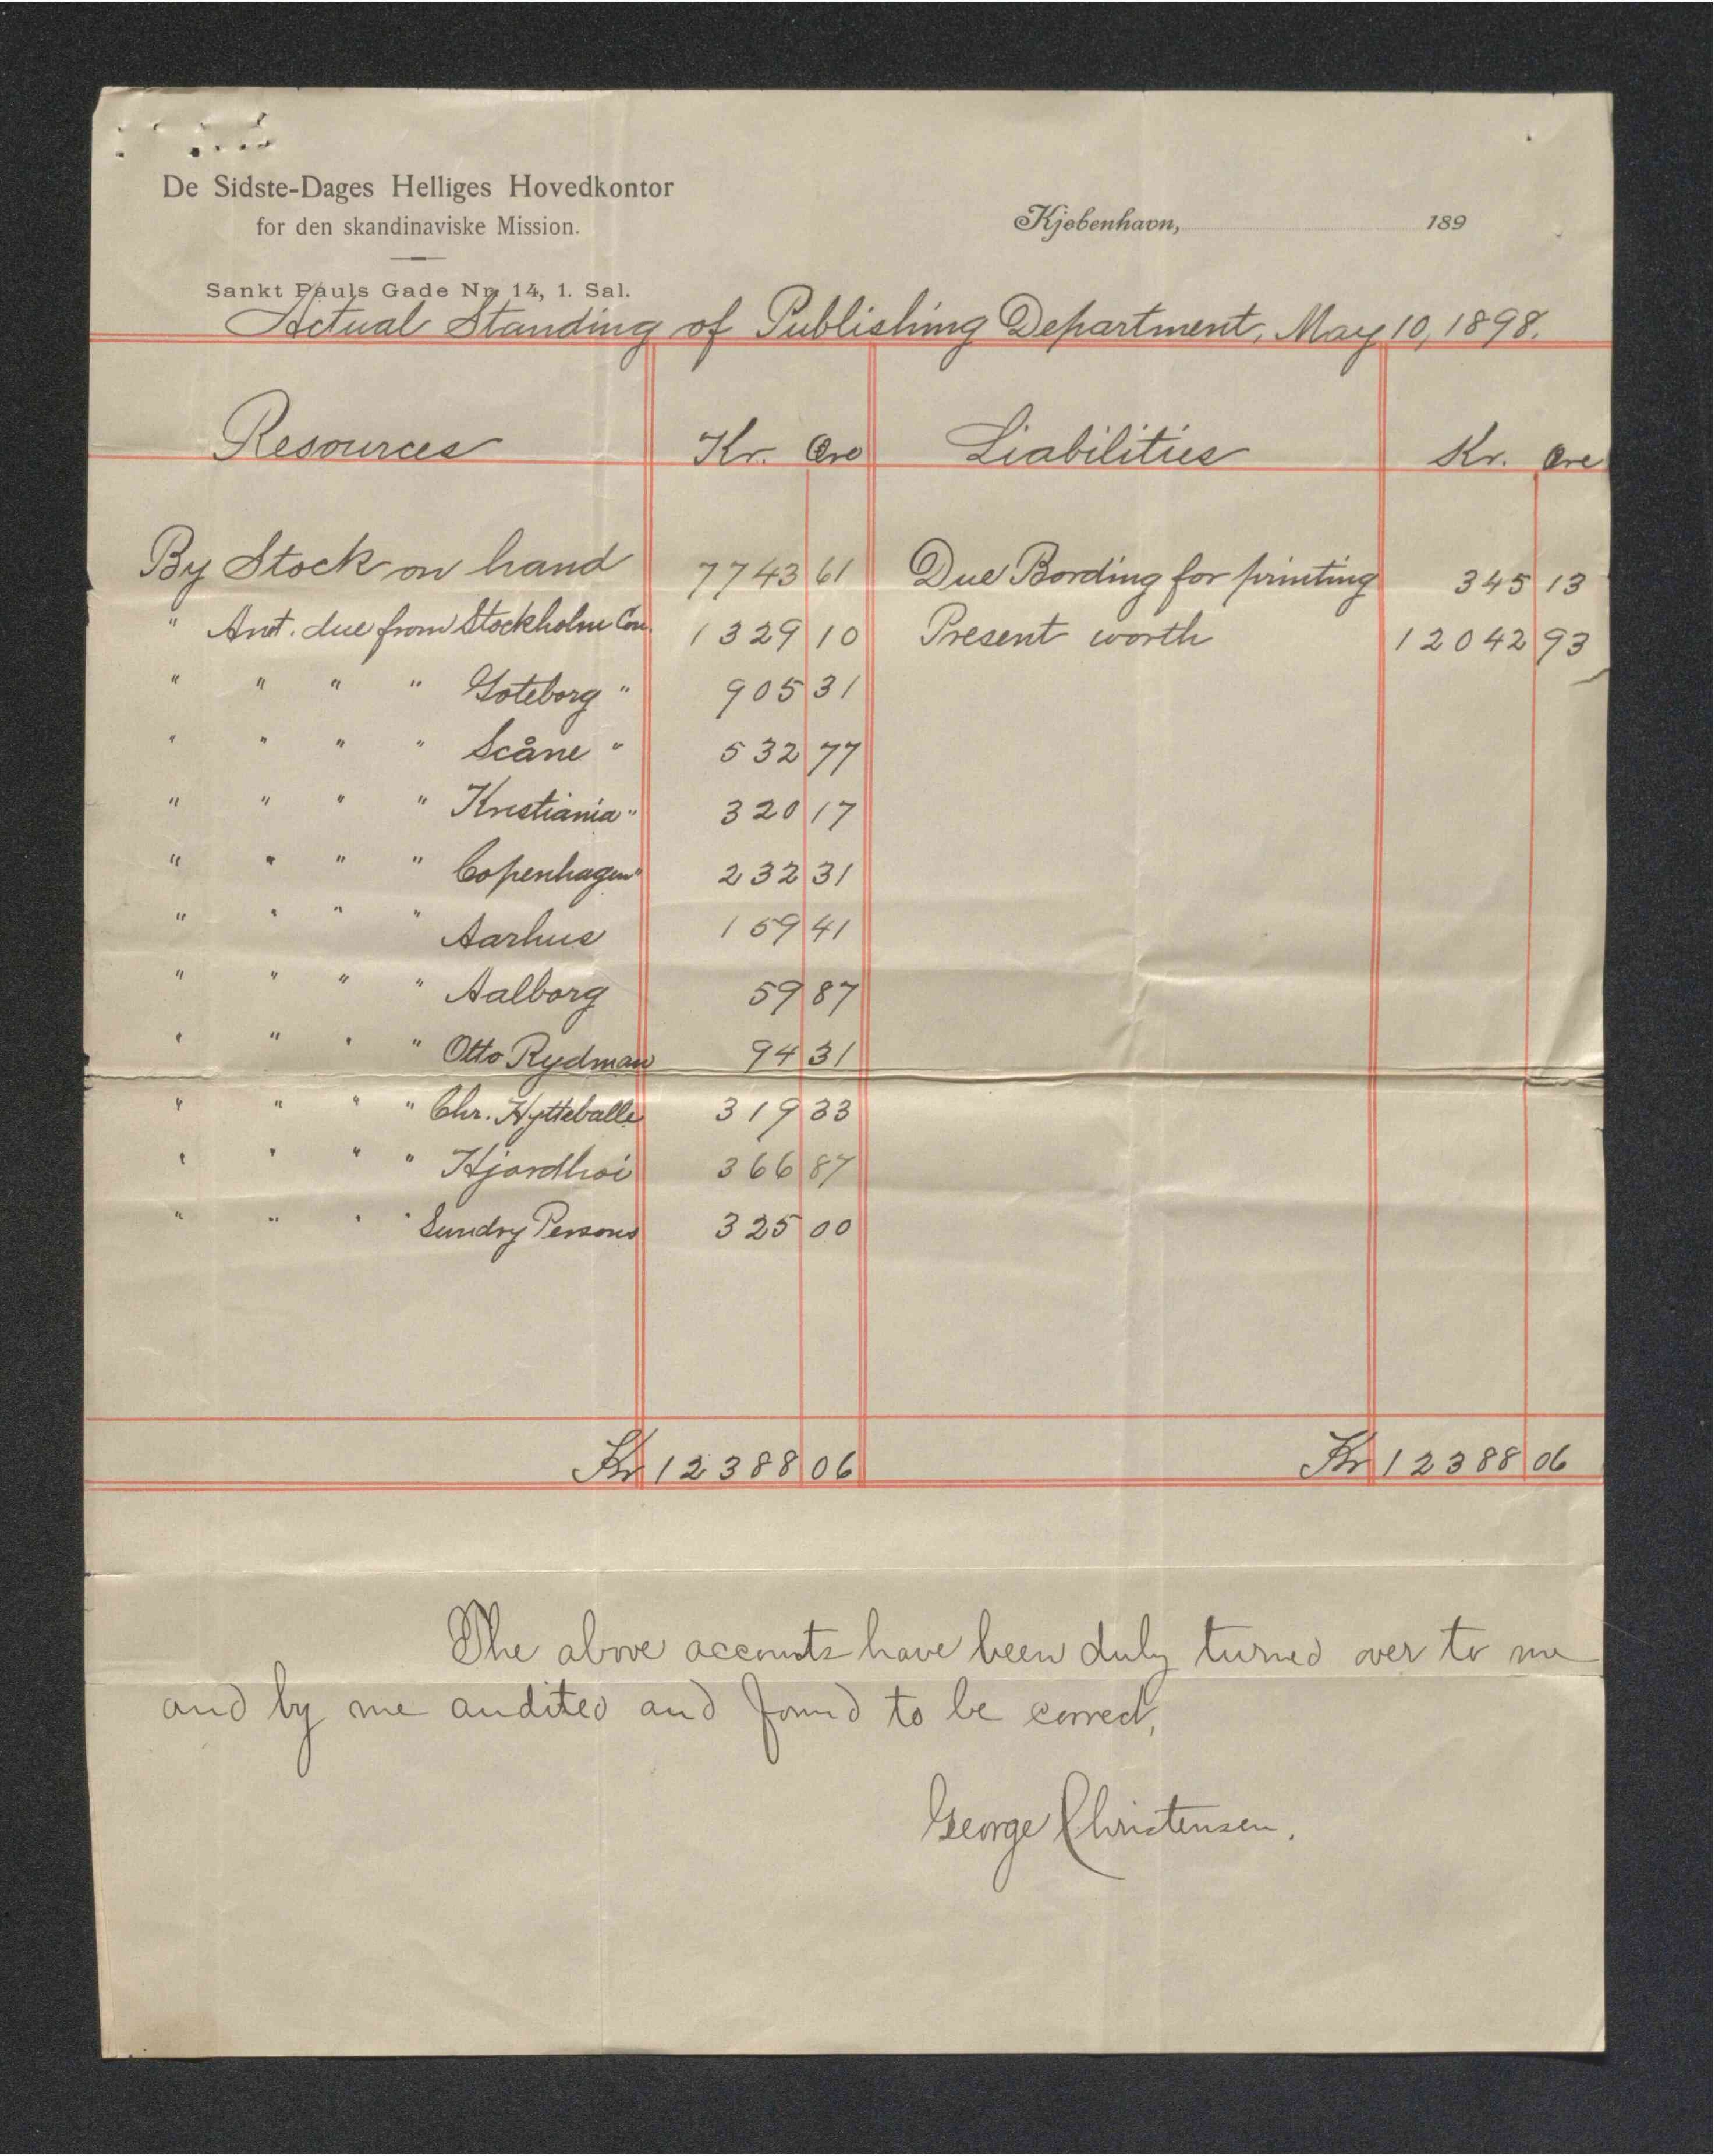 De Sidste-Dages Helliges Hovedkontor
for den skandinaviske Mission.
Kjøbenhavn, 189
Sankt Pauls Gade Nr. 14, 1. Sal.
Actual Standing of Publishing Department, May 10, 1898.
Resources Kr. Øre Liabilities Kr. Øre
By Stock on hand 7743 61 Due Bording for printing 345 13
" Amt. due from Stockholm Con. 1329 10 Present worth 12042 93
" " " " Goteborg " 905 31
" " " " Scåne " 532 77
" " " " Kristiania " 320 17
" " " " Copenhagen " 232 31
" " " " Aarhus 159 41
" " " " Aalborg 59 87
" " " " Otto Rydman 94 31
" " " " Chr. Hytteballe 319 33
" " " " Hjordhoi 366 87
" " " " Sundry Persons 325 00
Kr 12388 06 Kr 12388 06
The above accounts have been duly turned over to me
and by me audited and found to be correct,
George Christensen.